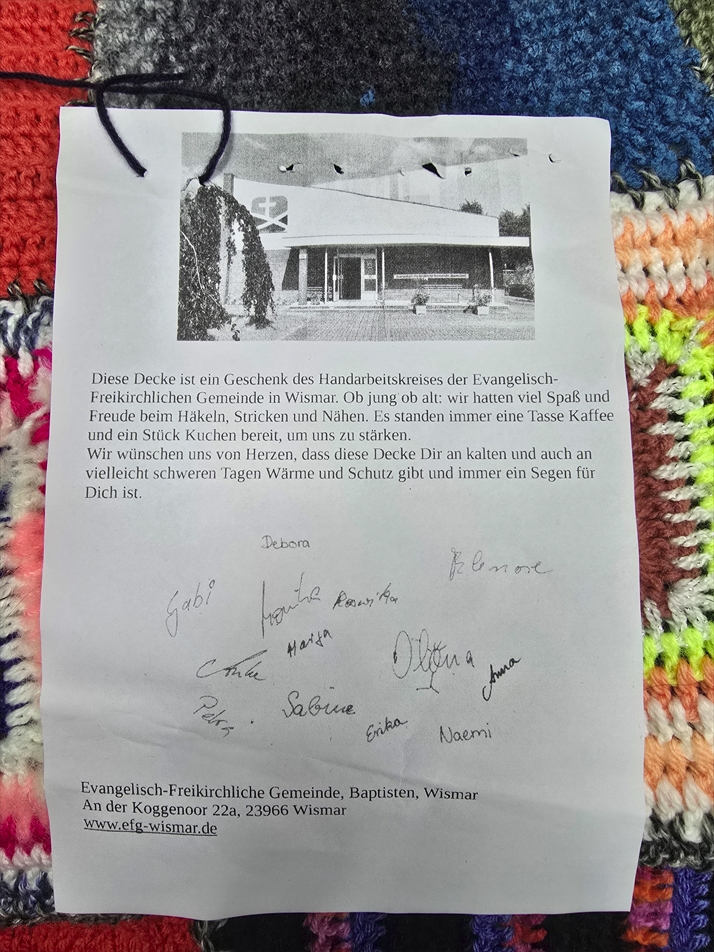 Diese Decke ist ein Geschenk des Handarbeitskreises der Evangelisch-
Freikirchlichen Gemeinde in Wismar. Ob jung ob alt: wir hatten viel Spaß und
Freude beim Häkeln, Stricken und Nähen. Es standen immer eine Tasse Kaffee
und ein Stück Kuchen bereit, um uns zu stärken.
Wir wünschen uns von Herzen, dass diese Decke Dir an kalten und auch an
vielleicht schweren Tagen Wärme und Schutz gibt und immer ein Segen für
Dich ist.
Debora
Gabi
Sabine
Anna
Erika
Naemi
Evangelisch-Freikirchliche Gemeinde, Baptisten, Wismar
An der Koggenoor 22a, 23966 Wismar
www.efg-wismar.de